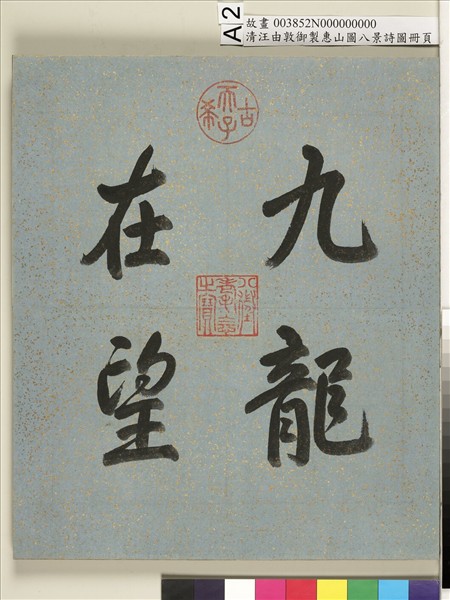 A2
故畫 003852N000000000
清汪由敦御製惠山園八景詩圖冊頁
古希天子
九龍
在望
八徵耄念之寶